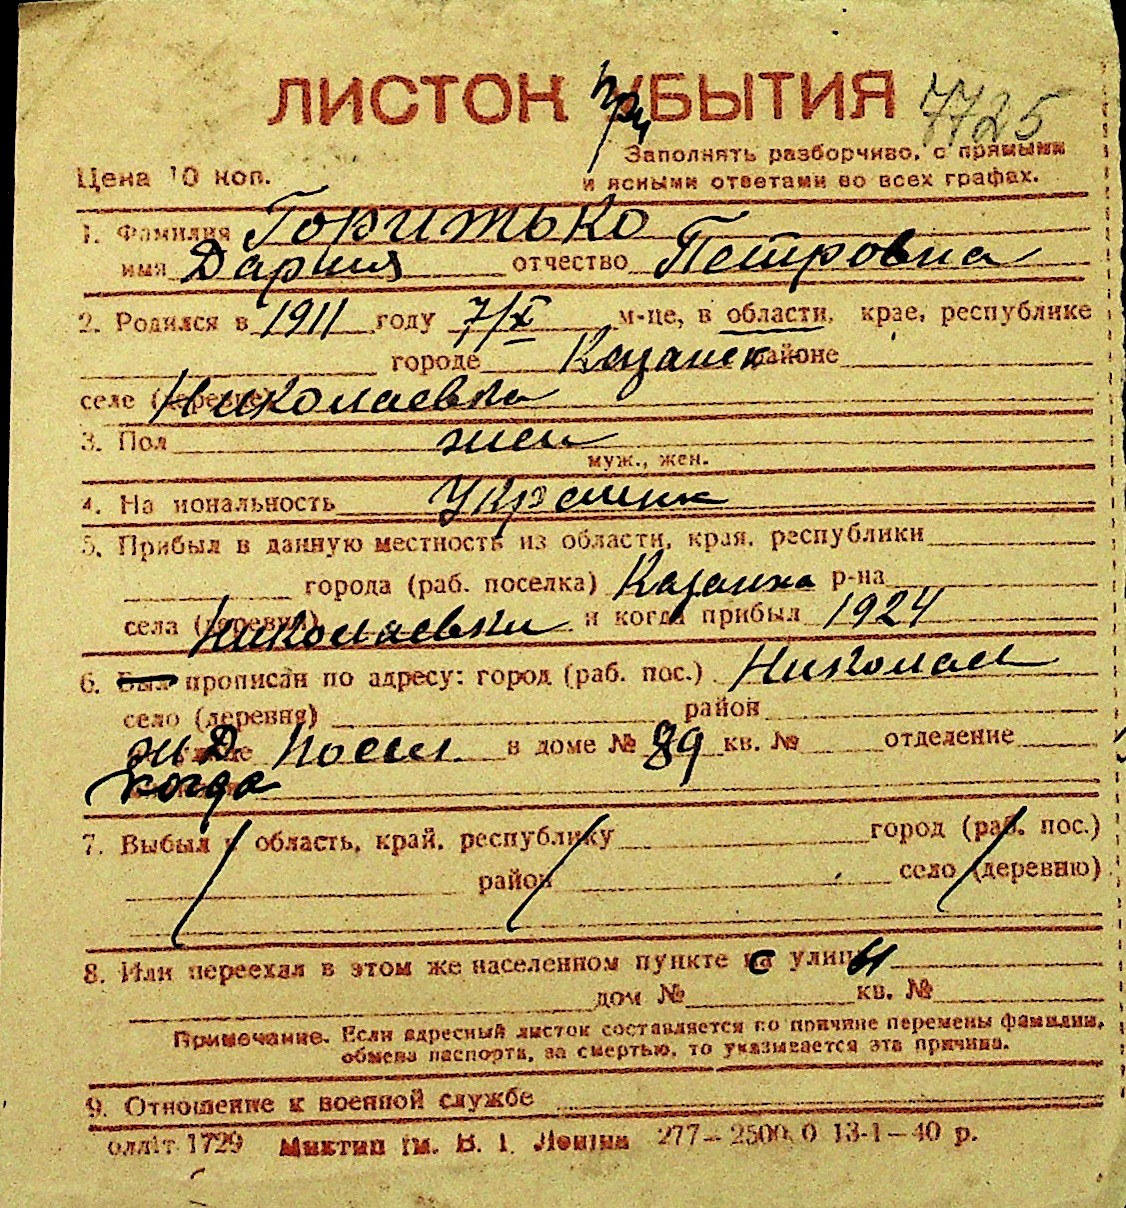 ЛИСТОК при УБЫТИЯ 7725
Заполнять разборчиво, с прямыми
Цена 10 коп. и ясными ответами во всех графах.
1. Фамилия Горитько
имя Дария отчество Петровна
2. Родился в 1911 году 7/X м-це, в области, крае, республике
городе Казанск районе
селе (деревне) Николаевка
3. Пол жен
муж., жен.
4. Национальность Украинк
5. Прибыл в данную местность из области, края, республики
города (раб. поселка) Казанка р-на
села (деревни) Николаевки и когда прибыл 1924
6. Был прописан по адресу: город (раб. пос.) Николаев
село (деревня) район
ж Д Посел. в доме № 89 кв. № отделение
когда
7. Выбыл в область, край, республику город (раб. пос.)
район село (деревню)
8. Или переехал в этом же населенном пункте с улицы
дом № кв. №
Примечание. Если адресный листок составляется по причине перемены фамилии,
обмена паспорта, за смертью, то указывается эта причина.
9. Отношение к военной службе
оллiт 1729 Миктип iм. В. I. Ленiна 277–2500.0 13-1–40 р.